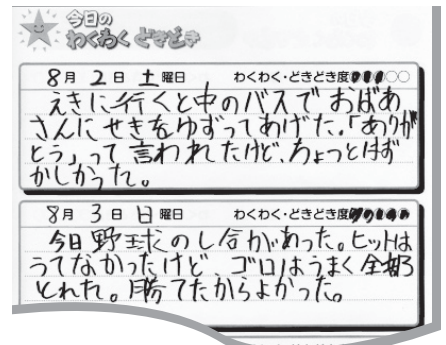 今日の
わくわく どきどき
8月 2日 土曜日 わくわく・どきどき度●●●○○
えきに行くと中のバスで おばあ
さんにせきをゆずってあげた。「ありが
とう」って 言われたけど、ちょっとはず
かしかった。
8月 3日 日曜日 わくわく・どきどき度●●●●●
今日野球のし合があった。ヒットは
うてなかったけど、ゴロはうまく全部
とれた。勝てたからよかった。